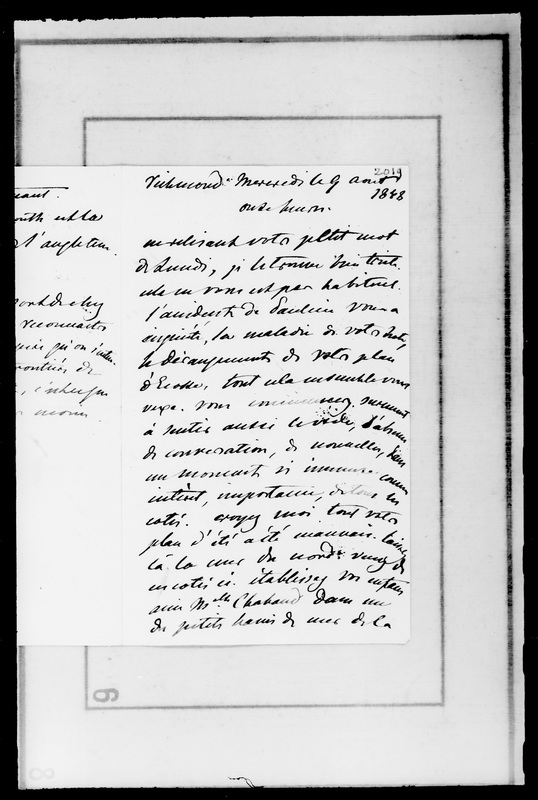 2019
Richmond. Mercredi le 9 aout
1848
onze heures.
en relisant votre petit mot
de Lundi, je le trouve bien triste.
cela ne vous est pas habituel.
l'accident de Pauline vous a
inquiété, la maladie de votre hote,
le dérangement de votre plan
d'Ecosse, tout cela ensemble vous
vexe. vous commencez surement
à sentir aussi le vide, l'absence
de conversation, de nouvelles, dans
un moment si immense comme
intérêt, importance, de tous les
cotés. croyez moi tout votre
plan d'été a été mauvais. laissez
là la mer du nord. venez de
ce coté ci. établissez vos enfans
avec Melle Chabaud dans un
des petits bains de mer de la
nant.
outh est la
l'angleterre.
reconnaitre
qu'on
6
8